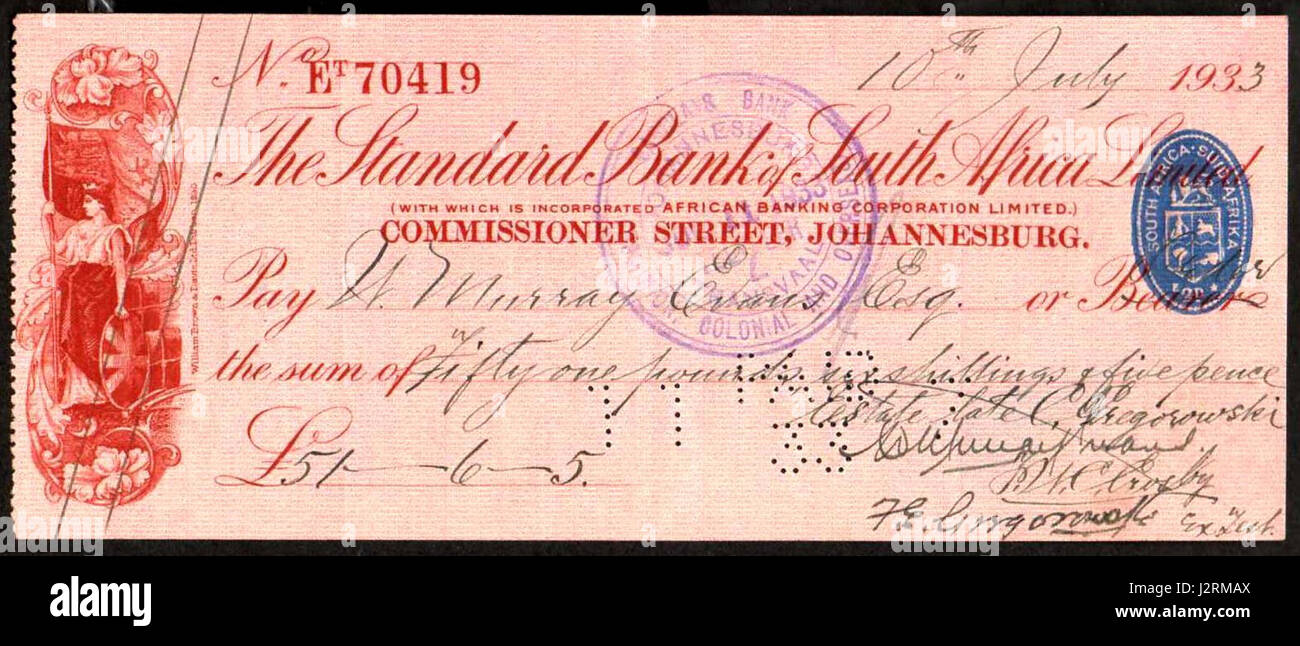 No. ET 70419
10th July 1933
The Standard Bank of South Africa Limited
(WITH WHICH IS INCORPORATED AFRICAN BANKING CORPORATION LIMITED.)
COMMISSIONER STREET, JOHANNESBURG.
Pay W. Murray Evans Esq. or Bearer
Order
the sum of Fifty one pounds six shillings & five pence
Estate late C. Gregorowski
£51-6-5.
W. C. Crosby
F. E. Gregorowski
Ex. Test.
BANK
JOHANNESBURG
TRANSVAAL
COLONIAL AND OVERSEAS
SOUTH AFRICA · SUID AFRIKA
11
33
a alamy stock photo
alamy
Image ID: J2RMAX
www.alamy.com